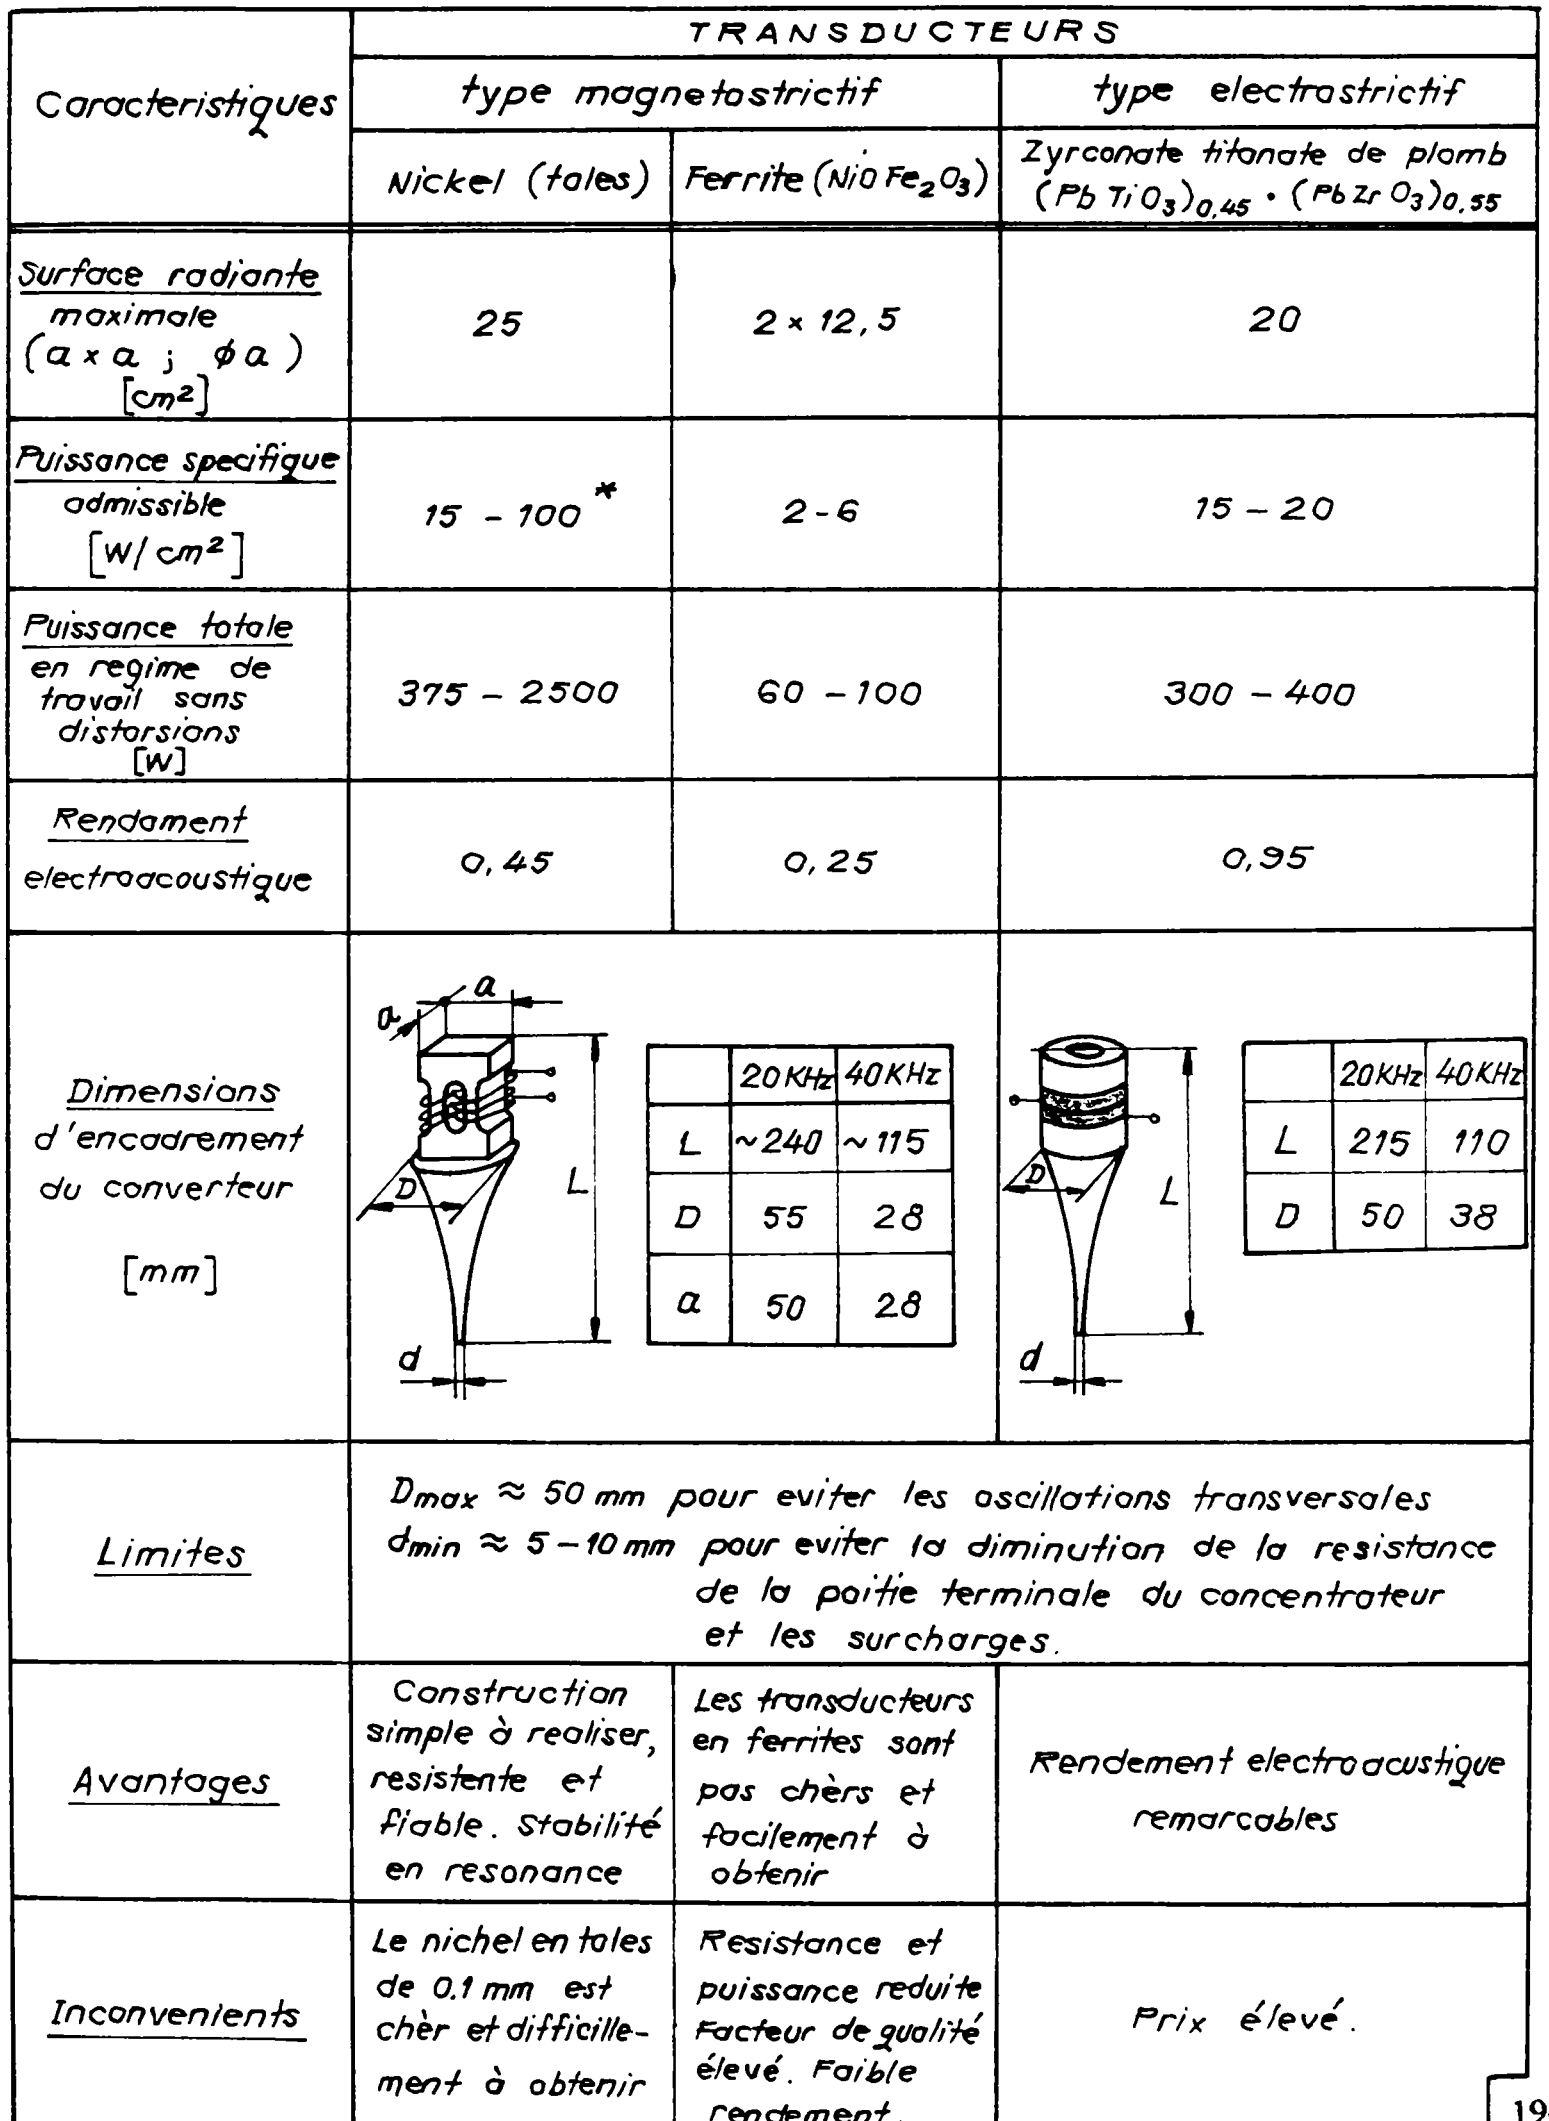 TRANSDUCTEURS
Caracteristiques
type magnetostrictif
type electrostrictif
Nickel (toles)
Ferrite (NiO Fe2O3)
Zyrconate titanate de plomb
(Pb Ti O3)0,45 · (Pb Zr O3)0,55
Surface radiante
maximale
(a x a ; ϕ a)
[cm²]
25
2 × 12,5
20
Puissance specifique
admissible
[W/cm²]
15 - 100*
2-6
15 - 20
Puissance totale
en regime de
travail sans
distorsions
[W]
375 - 2500
60 - 100
300 - 400
Rendament
electroacoustique
0,45
0,25
0,95
Dimensions
d'encadrement
du converteur
[mm]
a
a
D
L
d
20 KHz 40 KHz
L ~240 ~115
D 55 28
a 50 28
D
L
d
20 KHz 40 KHz
L 215 110
D 50 38
Limites
Dmax ≈ 50 mm pour eviter les oscillations transversales
dmin ≈ 5-10 mm pour eviter la diminution de la resistance
de la poitie terminale du concentrateur
et les surcharges.
Avantages
Construction
simple à realiser,
resistente et
fiable. Stabilité
en resonance
Les transducteurs
en ferrites sont
pas chèrs et
facilement à
obtenir
Rendement electroacustique
remarcables
Inconvenients
Le nichel en toles
de 0.1 mm est
chèr et difficille-
ment à obtenir
Resistance et
puissance reduite
Facteur de qualité
élevé. Faible
rendement.
Prix élevé.
19